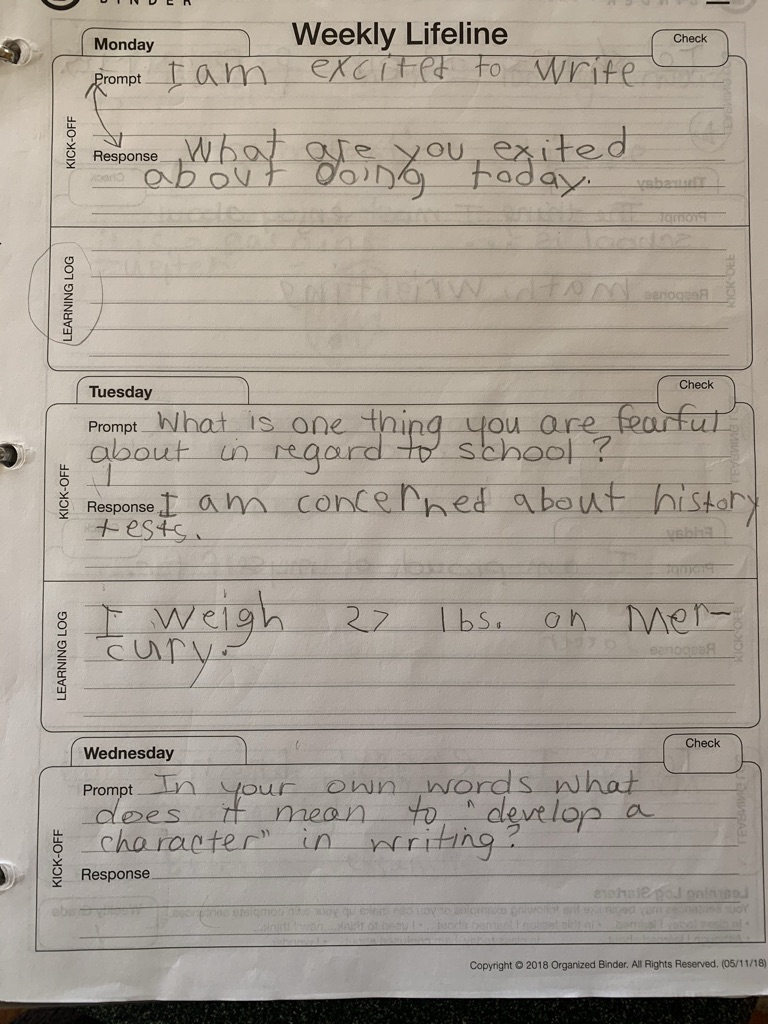 BINDER
Monday
Weekly Lifeline
Check
KICK-OFF
Prompt I am excited to write
Response What are you exited
about doing today.
LEARNING LOG
Tuesday
Check
KICK-OFF
Prompt What is one thing you are fearful
about in regard to school?
Response I am concerned about history
tests.
LEARNING LOG
I weigh 27 lbs. on Mer-
cury.
Wednesday
Check
KICK-OFF
Prompt In your own words what
does it mean to "develop a
character" in writing?
Response
Copyright © 2018 Organized Binder. All Rights Reserved. (05/11/18)